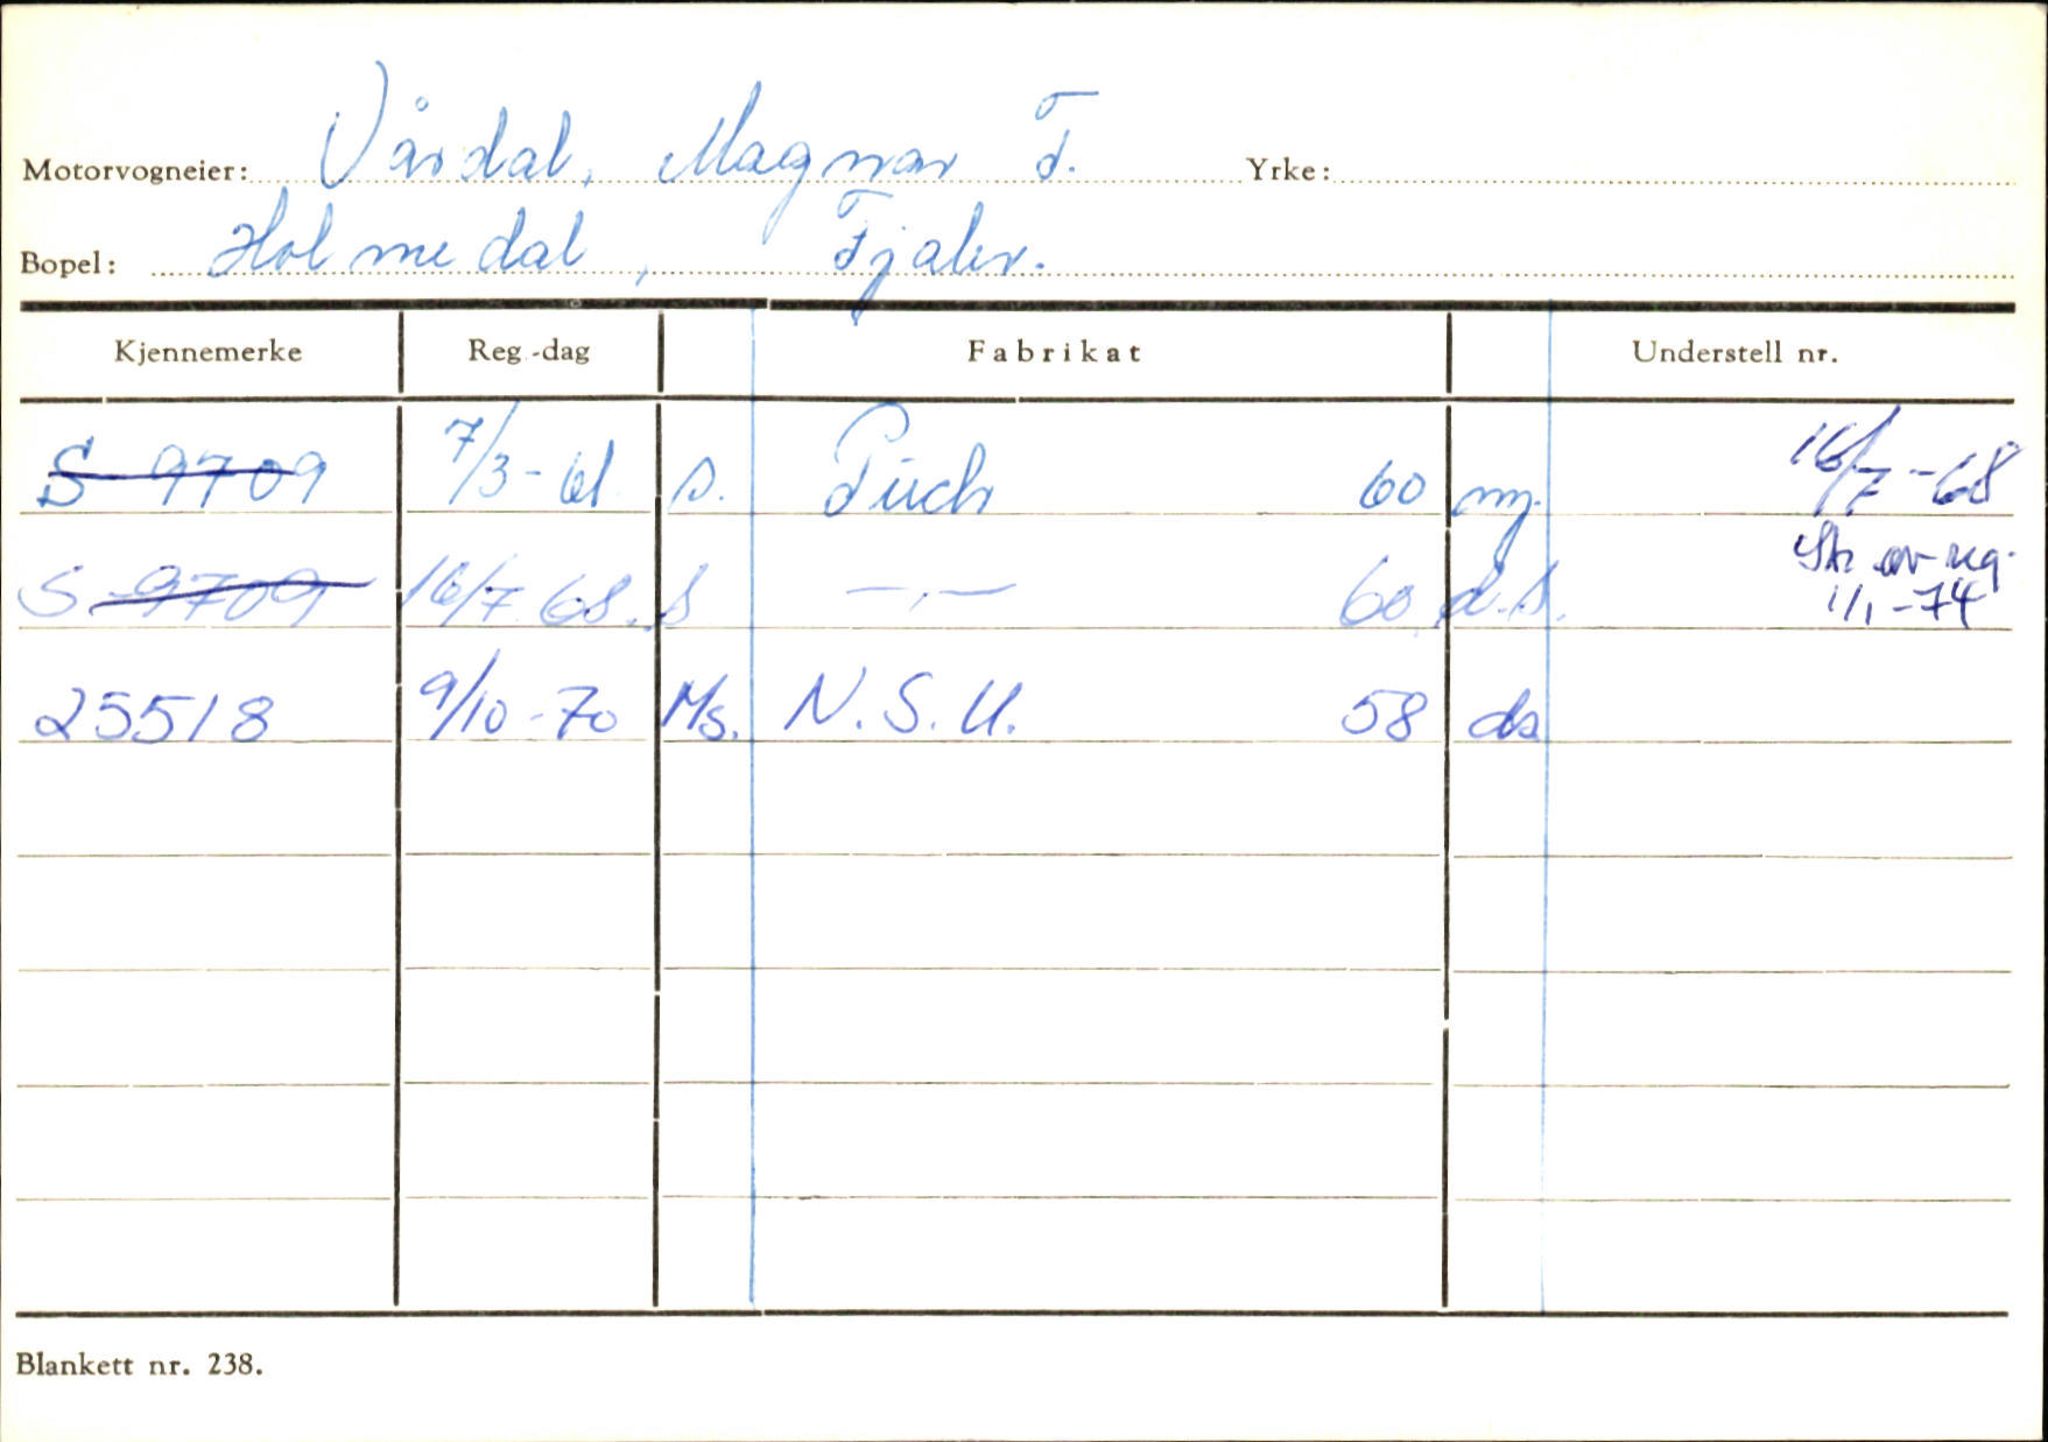 Motorvogneier: Vårdal, Magnar F. Yrke:
Bopel: Holmedal, Fjaler.
Kjennemerke Reg.-dag Fabrikat Understell nr.
S 9709 7/3-61 s. Puch 60 ny. 16/7-68
S-9709 16/7 68. s —,— 60 d.s. Str. av reg. 1/1-74
25518 9/10-70 Ms. N.S.U. 58 ds
Blankett nr. 238.